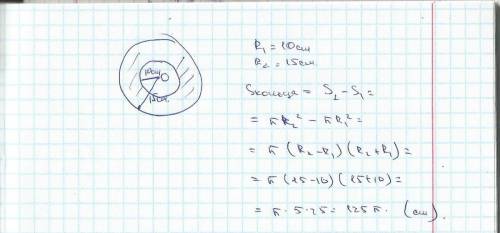 10см
15см.
R₁ = 10см
R₂ = 15см.
Sкольца = S₂ - S₁ =
= πR₂² - πR₁² =
= π (R₂ - R₁) (R₂ + R₁) =
= π (15 - 10) (15 + 10) =
= π · 5 · 25 = 125 π. (см).